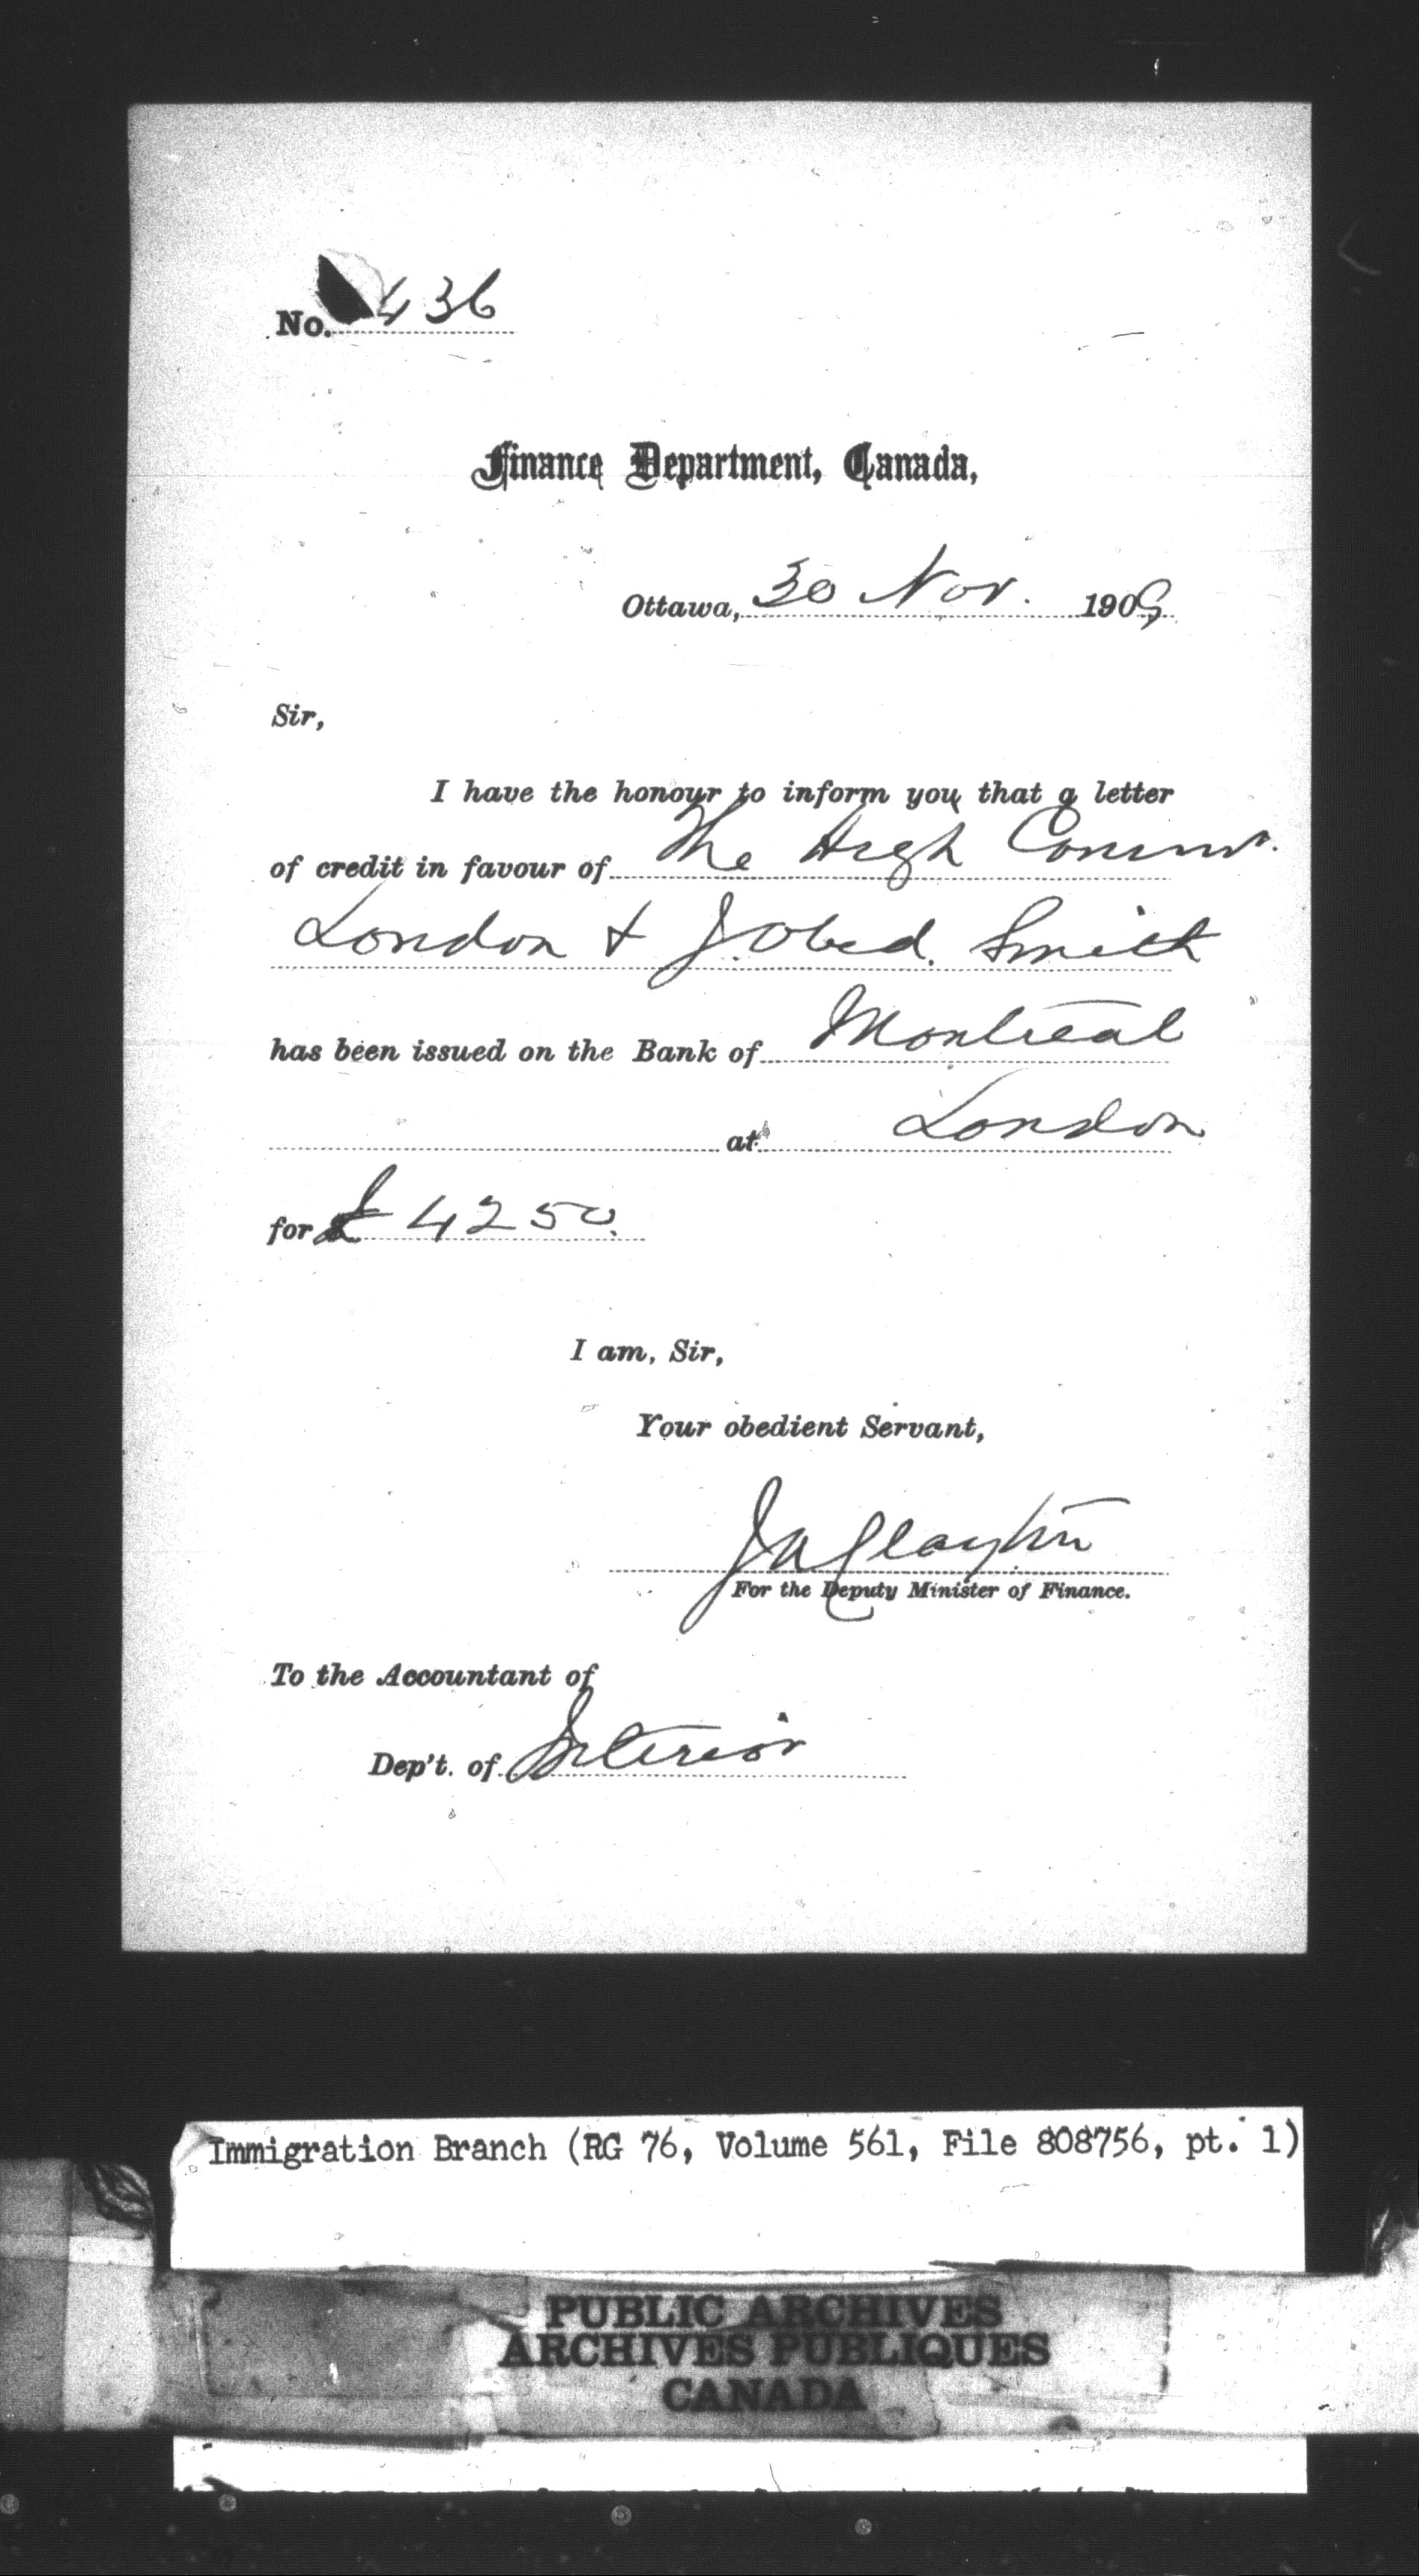 No. 436
Finance Department, Canada,
Ottawa, 30 Nov. 1909
Sir,
I have the honour to inform you that a letter
of credit in favour of The High Commr.
London & J. Obed. Smith
has been issued on the Bank of Montreal
at London
for £ 4250.
I am, Sir,
Your obedient Servant,
J A Clayton
For the Deputy Minister of Finance.
To the Accountant of
Dep't. of Interior
Immigration Branch (RG 76, Volume 561, File 808756, pt. 1)
PUBLIC ARCHIVES
ARCHIVES PUBLIQUES
CANADA